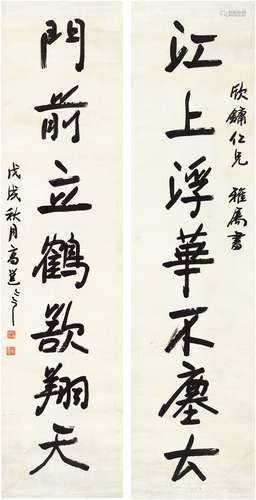 欣鏞仁兄 雅屬書
江上浮華不塵去
門前立鶴欲翔天
戊戌秋月高